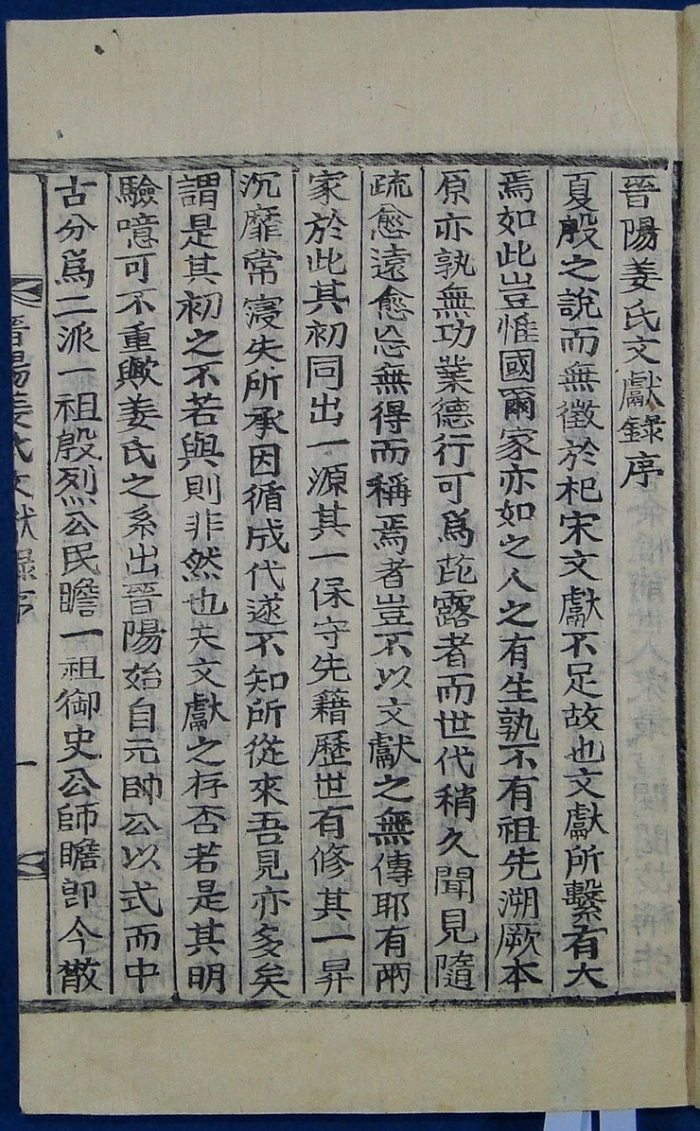 晉陽姜氏文獻錄序
夏殷之說而無徵於杞宋文獻不足故也文獻所繫有大
焉如此豈惟國爾家亦如之人之有生孰不有祖先溯厥本
原亦孰無功業德行可爲茈露者而世代稍久聞見隨
疏愈遠愈忘無得而稱焉者豈不以文獻之無傳耶有兩
家於此其初同出一源其一保守先籍歷世有修其一昇
沉靡常寖失所承因循成代遂不知所從來吾見亦多矣
謂是其初之不若與則非然也夫文獻之存否若是其明
驗噫可不重歟姜氏之系出晉陽始自元帥公以式而中
古分爲二派一祖殷烈公民瞻一祖御史公師瞻卽今散
晉陽姜氏文獻錄序 一